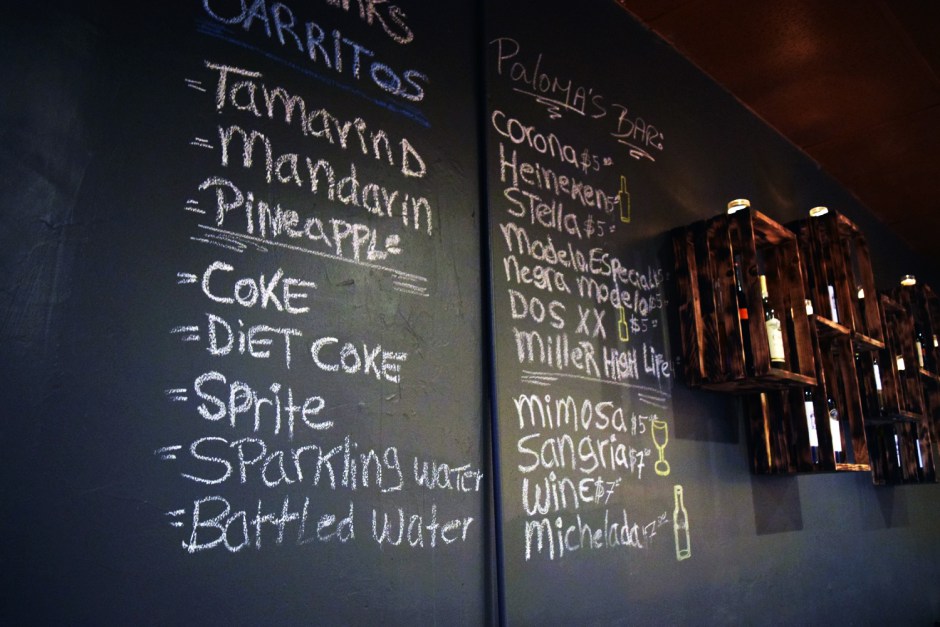 JARRITOS
= Tamarind
= Mandarin
= Pineapple
= Coke
= Diet Coke
= Sprite
= Sparkling water
= Battled Water
Paloma's Bar:
Corona $5
Heineken $5
Stella $5
Modelo Especial $5
negra modelo $5
DOS XX $5
Miller High Life
mimosa $5
Sangria $7
Wine $7
michelada $7